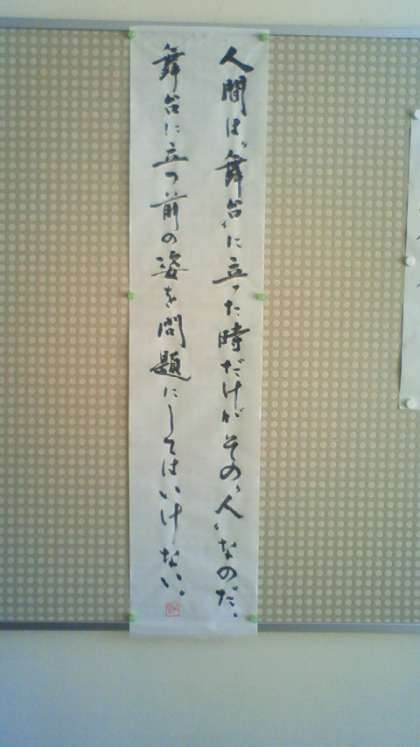 人間は〝舞台〟に立った時だけがその〝人〟なのだ。
舞台に立つ前の姿を問題にしてはいけない。